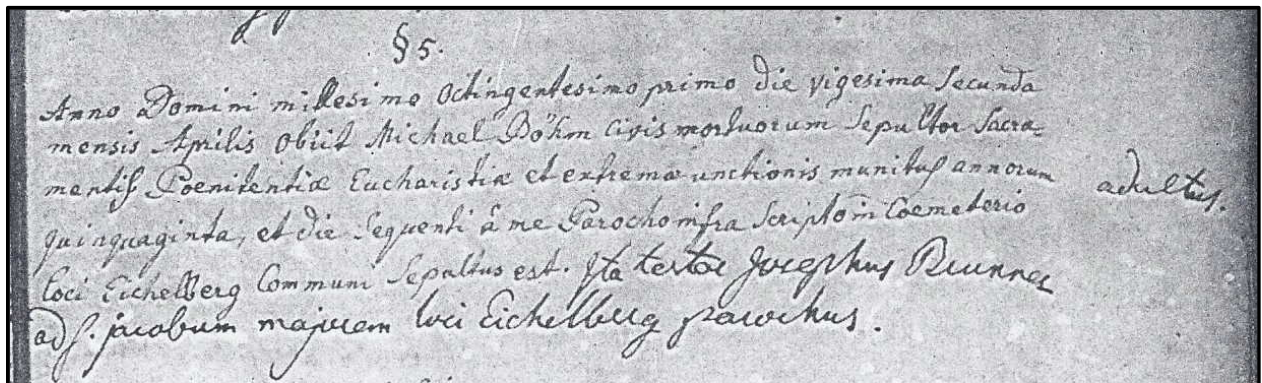 § 5.
Anno Domini millesimo octingentesimo primo die vigesima secunda
mensis Aprilis obiit Michael Böhm civis mortuorum sepultor Sacra=
mentis Poenitentiæ Eucharistiæ et extremæ unctionis munitus annorum
adultus.
quinquaginta, et die sequenti â me Parocho infra scripto in Coemeterio
loci Eichelberg Communi sepultus est. Ita testor Josephus Brunner
ad S. jacobum majorem loci Eichelberg parochus.